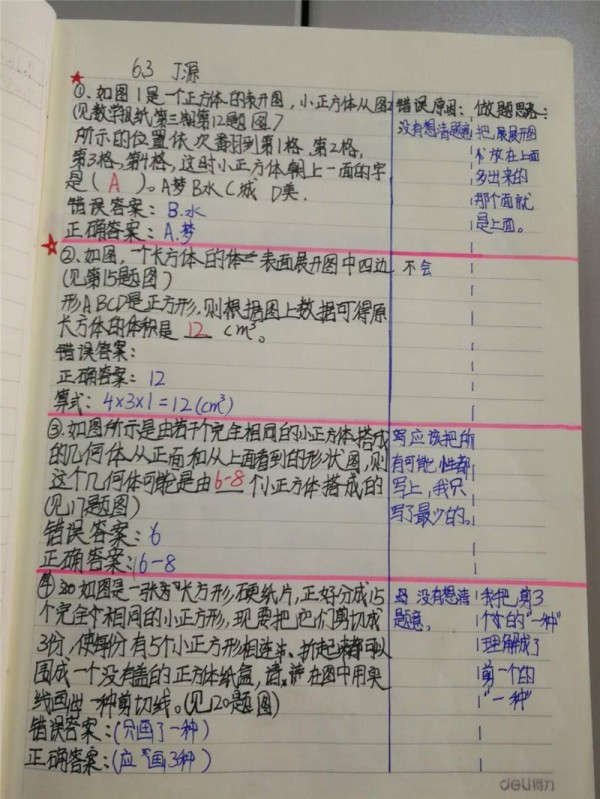 6.3 J源
①.如图1是一个正方体的表开图,小正方体从图2
(见数学报纸第三期第12题图)
所示的位置依次番羽到第1格,第2格,
第3格,第4格,这时小正方体朝上一面的字
是(A)。A梦 B水 C城 D美.
错误答案:B.水
正确答案:A.梦
错误原因:
没有想清题意
做题思路:
把展展开图
折放在上面
多出来的
那个面就
是上面。
②.如图,一个长方体的体表面展开图中四边
(见第15题图)
形ABCD是正方形,则根据图上数据可得原
长方体的体积是 12 cm³。
错误答案:
正确答案:12
算式:4×3×1=12(cm³)
不会
③.如图所示是由若干个完全相同的小正方体搭成
的几何体从正面和从上面看到的形状图,则
这个几何体可能是由6-8个小正方体搭成的
(见17题图)
错误答案:6
正确答案:6-8
写应该把所
有可能性都
写上,我只
写了最少的。
④如图是一张长方形硬纸片,正好分成15
个完全相同的小正方形,现要把它们剪切成
3份,使每份有5个小正方形相连,折起来都可以
围成一个没有盖的正方体纸盒,请在图中用实
线画出一种剪切线。(见20题图)
错误答案:(只画了一种)
正确答案:(应画3种)
没有想清
题意,
我把剪3
个的"一种"
理解成了
剪一个的
"一种"
deli得力